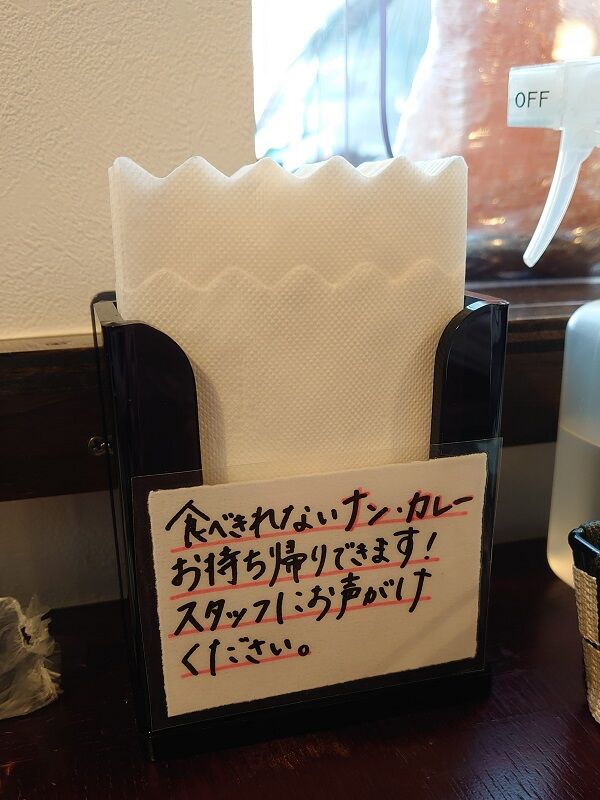 OFF
食べきれないナン・カレー
お持ち帰りできます!
スタッフにお声がけ
ください。